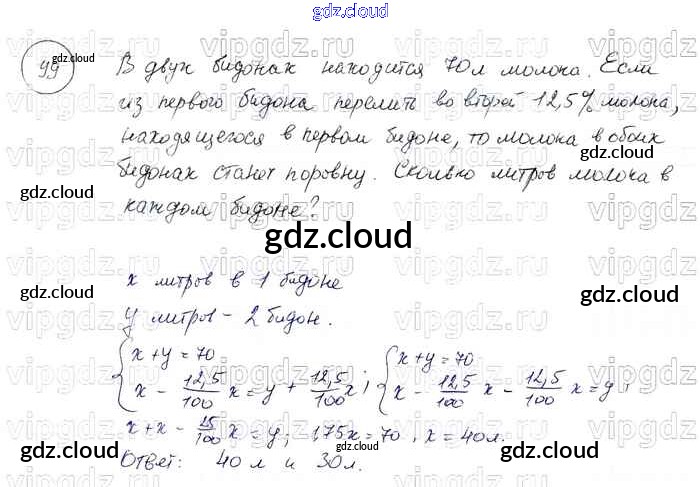 gdz.cloud
99 gdz.cloud В двух бидонах находится 70л молока. Если
из первого бидона перелить во второй 12,5% молока,
находящегося в первом бидоне, то молока в обоих
бидонах станет поровну. Сколько литров молока в
gdz.cloud gdz.cloud
каждом бидоне?
gdz.cloud
x литров в 1 бидоне
gdz.cloud gdz.cloud
y литров - 2 бидон.
{x+y=70 {x+y=70
x - 12,5/100 x = y + 12,5/100 x; x - 12,5/100 x - 12,5/100 x = y;
x+x - 25/100 x = y; 1,75x=70, x=40л.
gdz.cloud gdz.cloud gdz.cloud
Ответ: 40 л и 30л.
vipgdz.ru vipgdz.ru vipgdz.ru vipgdz.ru